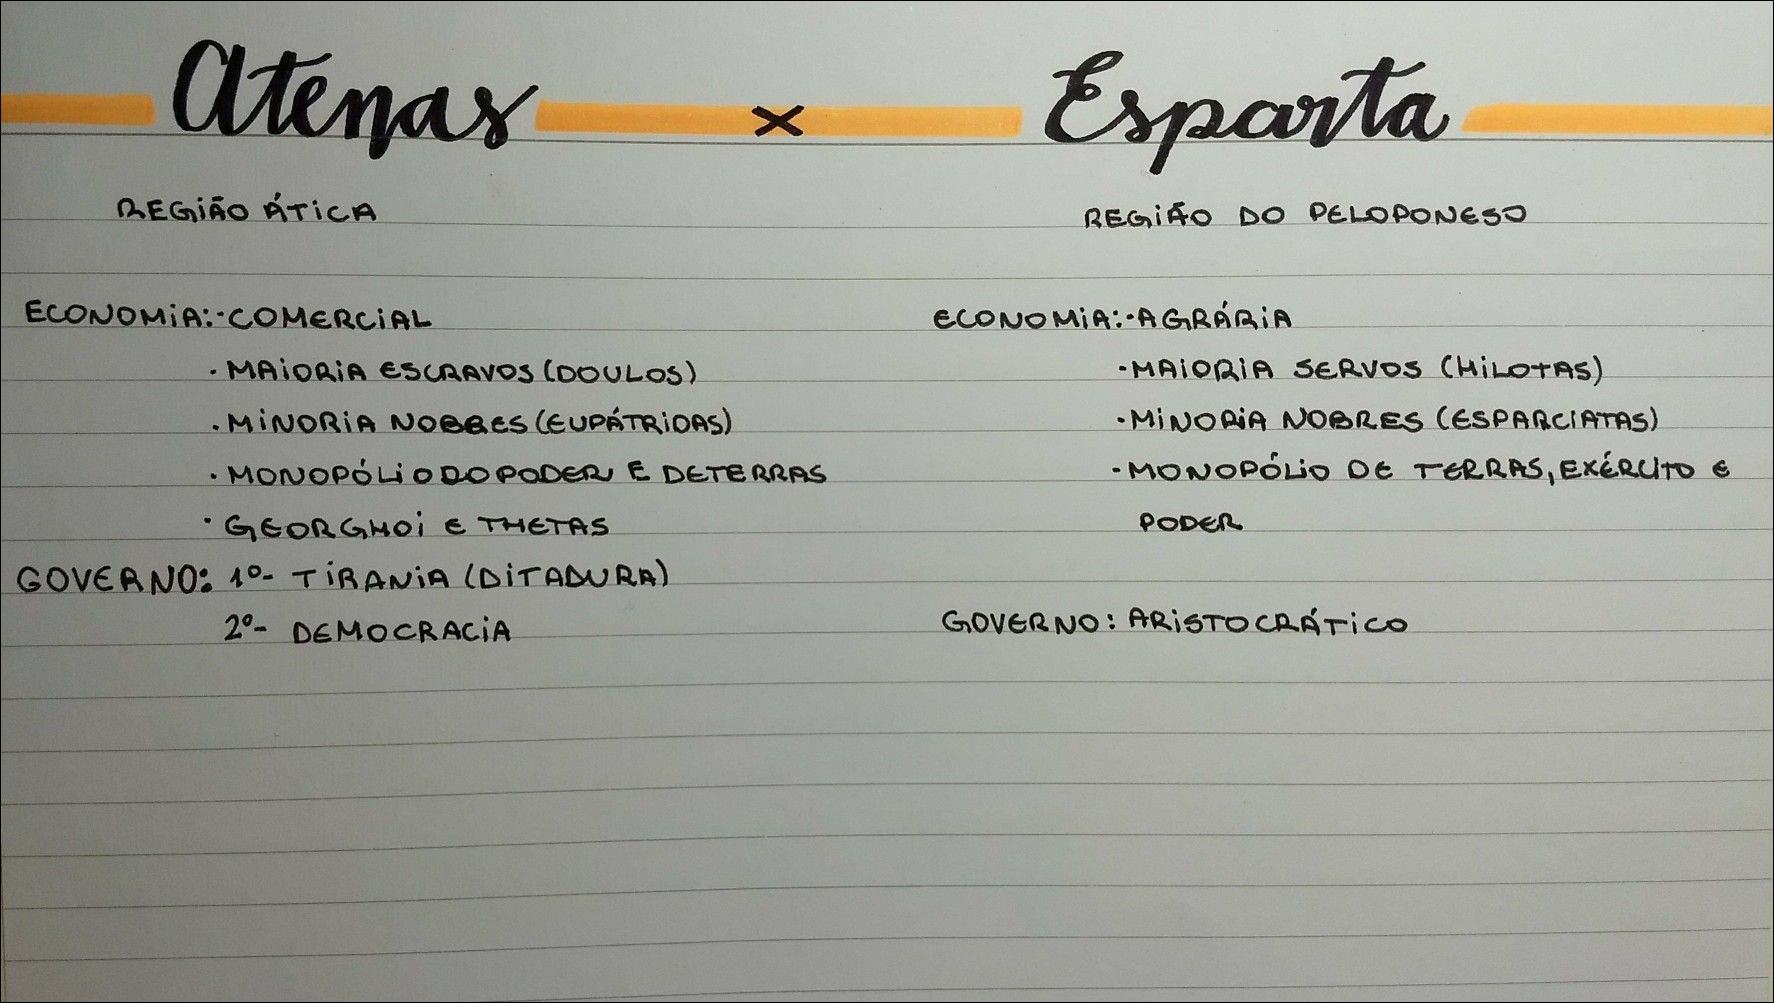 Atenas x Esparta
REGIÃO ÁTICA
REGIÃO DO PELOPONESO
ECONOMIA:·COMERCIAL
·MAIORIA ESCRAVOS (DOULOS)
·MINORIA NOBRES (EUPÁTRIDAS)
·MONOPÓLIO DO PODER E DE TERRAS
·GEORGHOI E THETAS
GOVERNO: 1º- TIRANIA (DITADURA)
2º- DEMOCRACIA
ECONOMIA:·AGRÁRIA
·MAIORIA SERVOS (HILOTAS)
·MINORIA NOBRES (ESPARCIATAS)
·MONOPÓLIO DE TERRAS, EXÉRCITO E
PODER
GOVERNO: ARISTOCRÁTICO